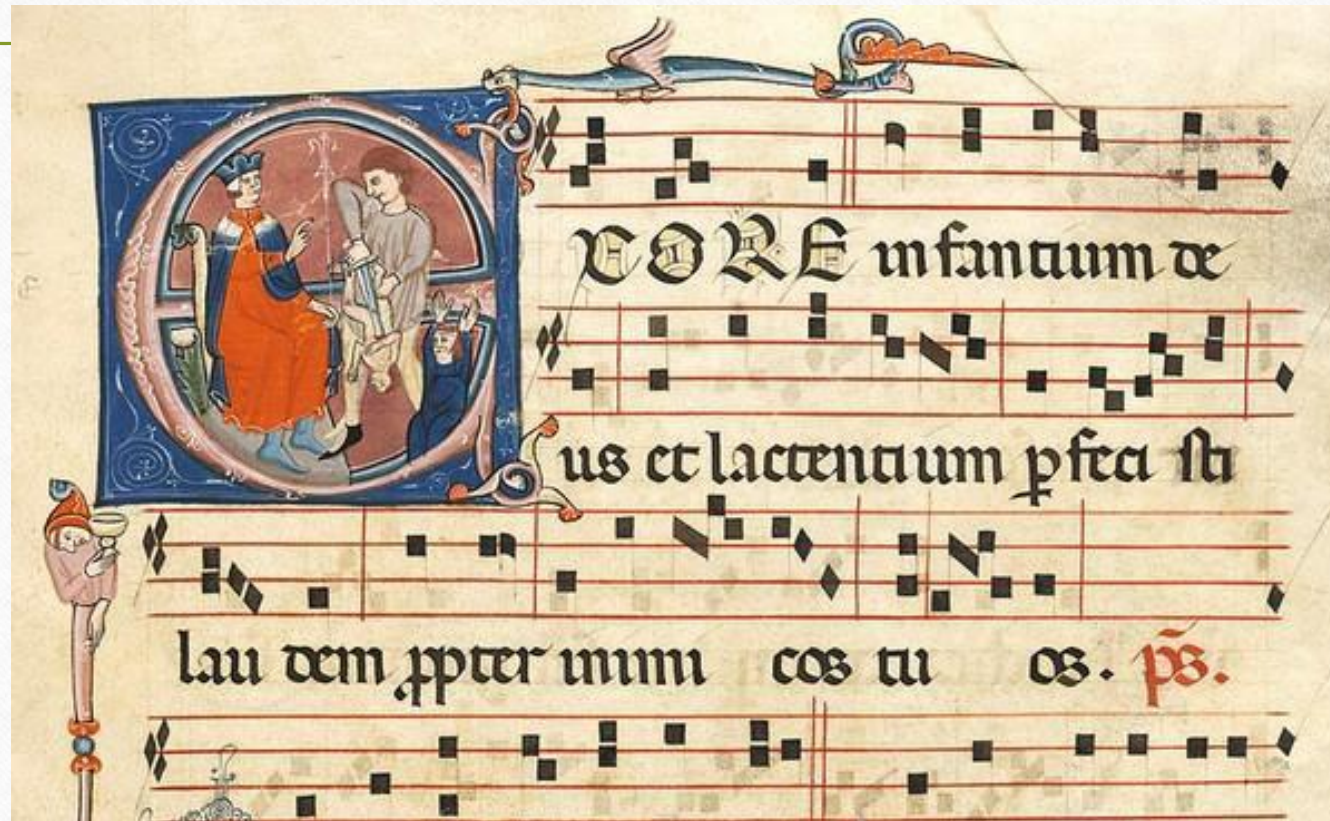 EXORE infantium de
us et lactentium ꝑfeci sti
lau dem ꝓpter inimi cos tu os. p̄s.